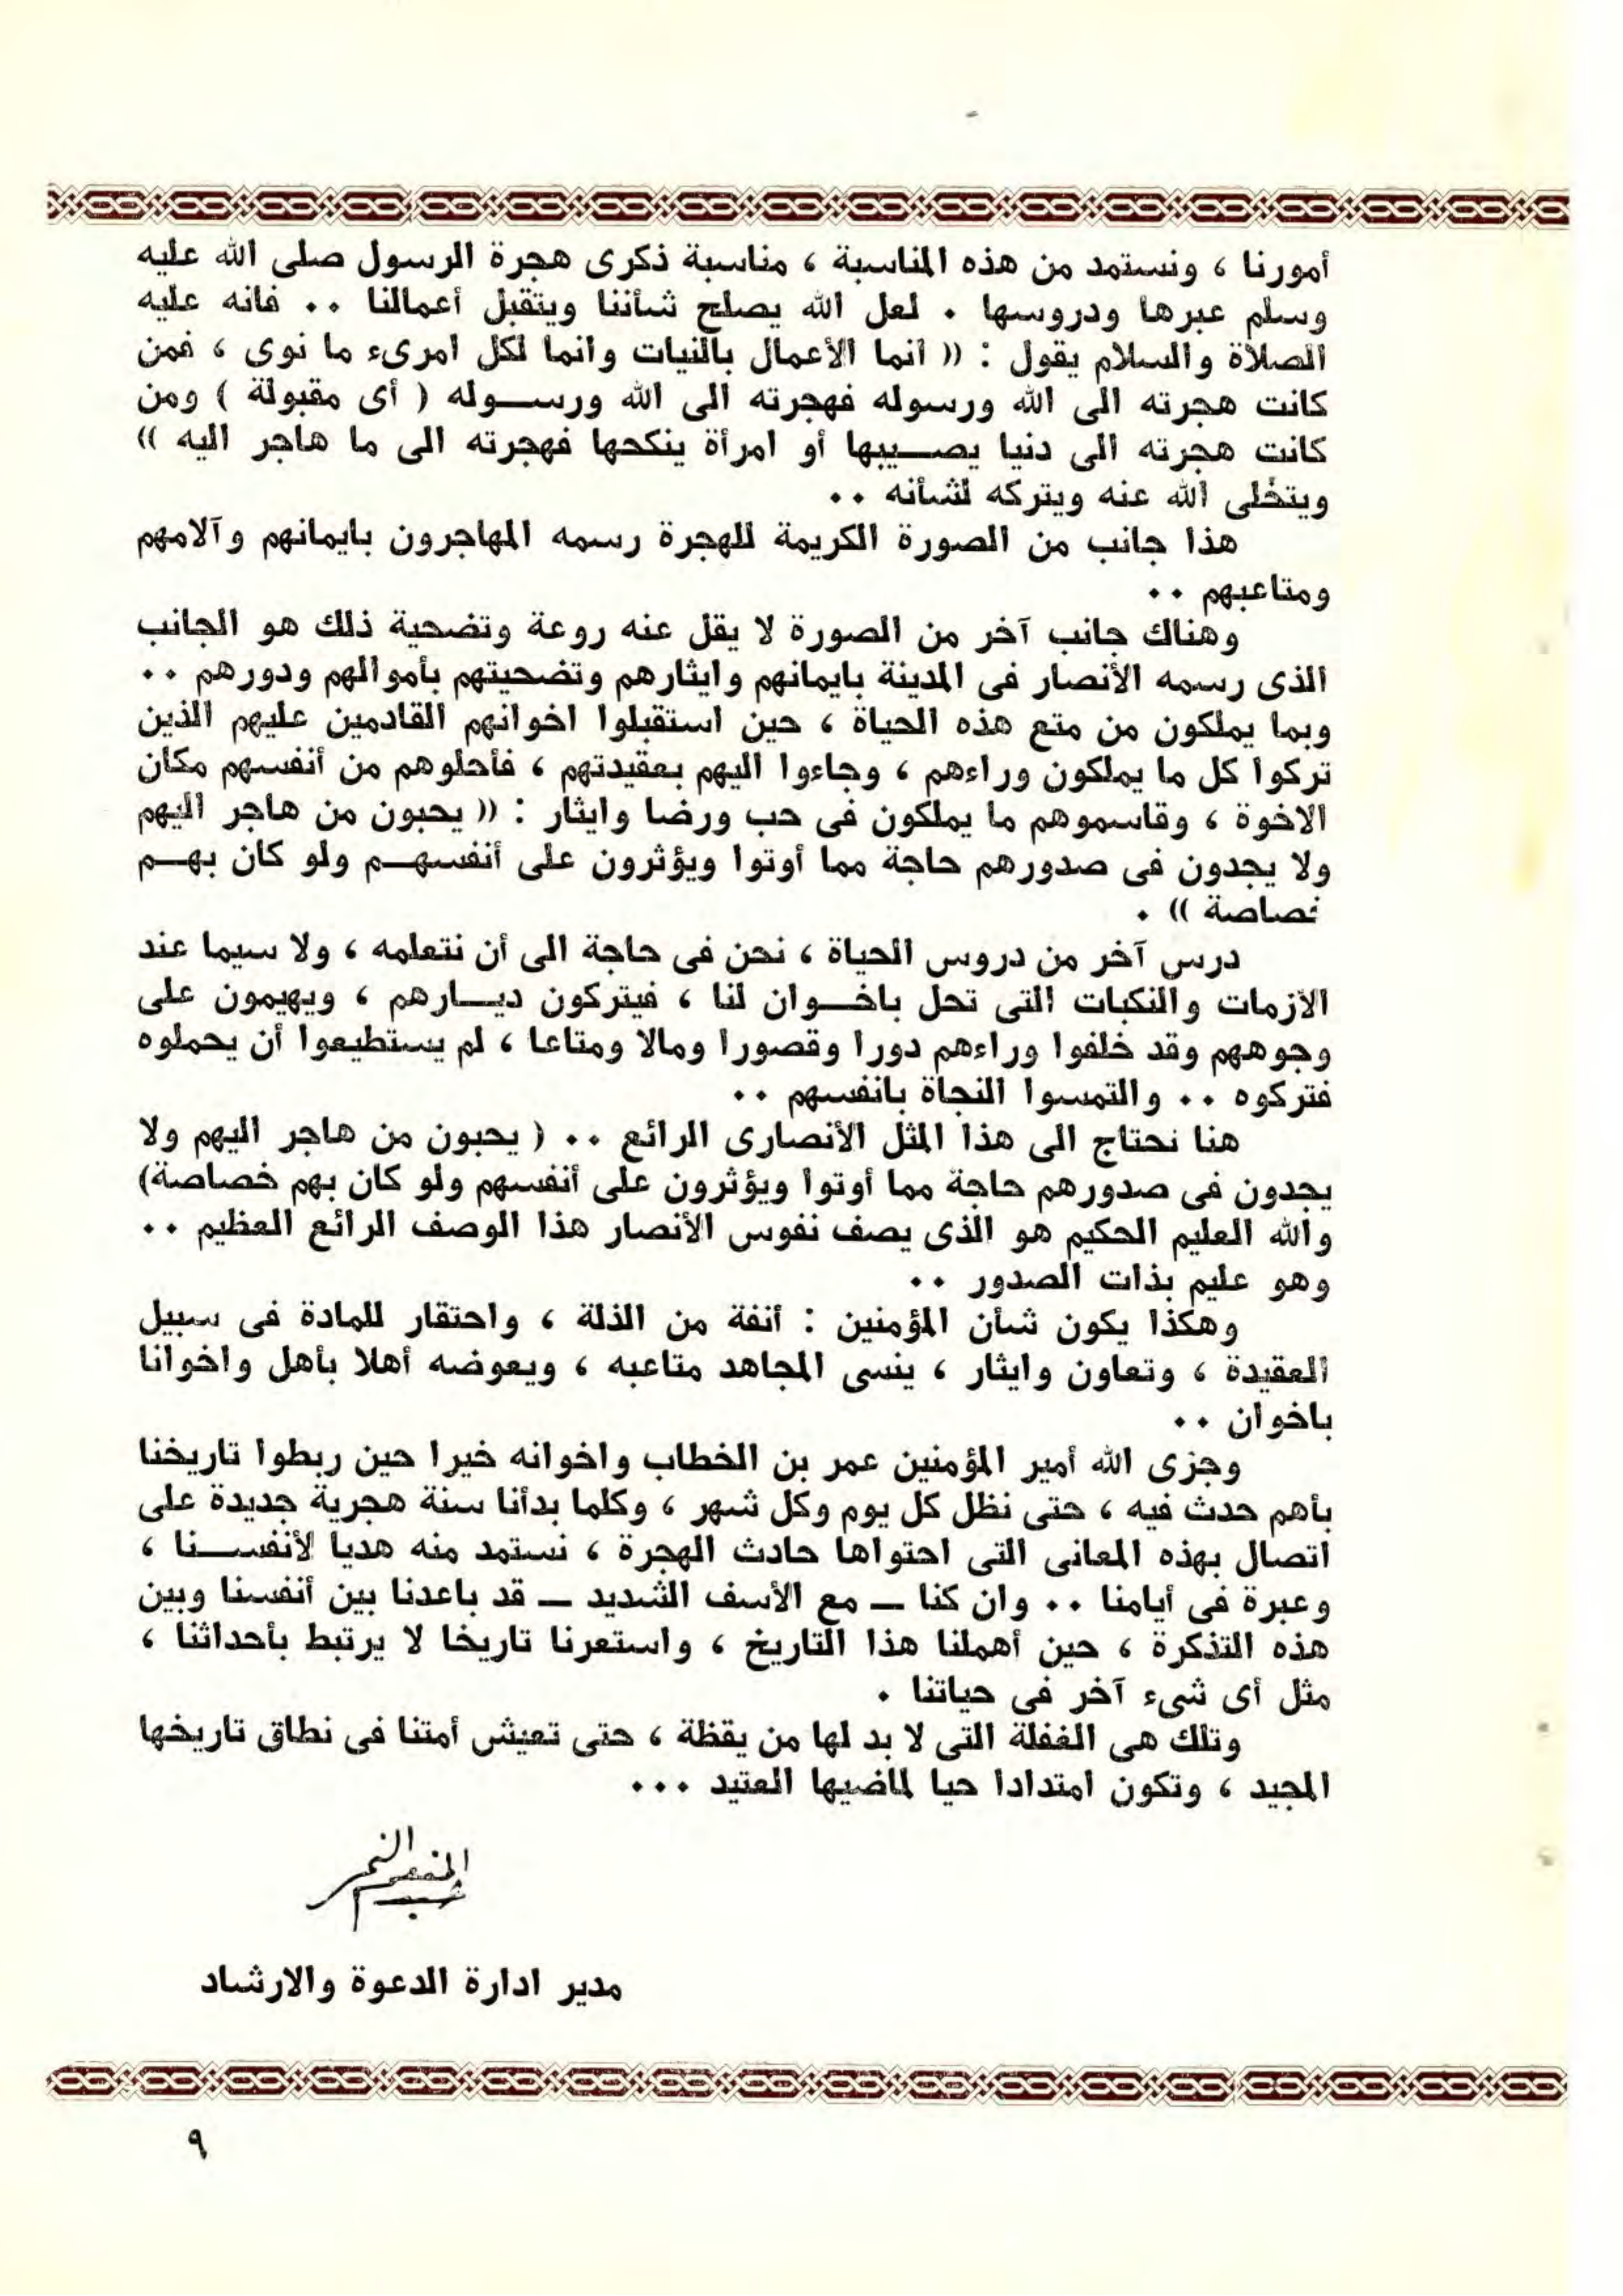 أمورنا ، ونستمد من هذه المناسبة ، مناسبة ذكرى هجرة الرسول صلى الله عليه
وسلم عبرها ودروسها . لعل الله يصلح شأننا ويتقبل أعمالنا .. فانه عليه
الصلاة والسلام يقول : (( انما الأعمال بالنيات وانما لكل امرىء ما نوى ، فمن
كانت هجرته الى الله ورسوله فهجرته الى الله ورسـوله ( أى مقبولة ) ومن
كانت هجرته الى دنيا يصـيبها أو امرأة ينكحها فهجرته الى ما هاجر اليه ))
ويتخلى الله عنه ويتركه لشأنه ..
هذا جانب من الصورة الكريمة للهجرة رسمه المهاجرون بايمانهم وآلامهم
ومتاعبهم ..
وهناك جانب آخر من الصورة لا يقل عنه روعة وتضحية ذلك هو الجانب
الذى رسمه الأنصار فى المدينة بايمانهم وايثارهم وتضحيتهم بأموالهم ودورهم ..
وبما يملكون من متع هذه الحياة ، حين استقبلوا اخوانهم القادمين عليهم الذين
تركوا كل ما يملكون وراءهم ، وجاءوا اليهم بعقيدتهم ، فأحلوهم من أنفسهم مكان
الاخوة ، وقاسموهم ما يملكون فى حب ورضا وايثار : (( يحبون من هاجر اليهم
ولا يجدون فى صدورهم حاجة مما أوتوا ويؤثرون على أنفسهـم ولو كان بهـم
خصاصة )) .
درس آخر من دروس الحياة ، نحن فى حاجة الى أن نتعلمه ، ولا سيما عند
الأزمات والنكبات التى تحل باخـوان لنا ، فيتركون ديـارهم ، ويهيمون على
وجوههم وقد خلفوا وراءهم دورا وقصورا ومالا ومتاعا ، لم يستطيعوا أن يحملوه
فتركوه .. والتمسوا النجاة بانفسهم ..
هنا نحتاج الى هذا المثل الأنصارى الرائع .. ( يحبون من هاجر اليهم ولا
يجدون فى صدورهم حاجة مما أوتوا ويؤثرون على أنفسهم ولو كان بهم خصاصة)
والله العليم الحكيم هو الذى يصف نفوس الأنصار هذا الوصف الرائع العظيم ..
وهو عليم بذات الصدور ..
وهكذا يكون شأن المؤمنين : أنفة من الذلة ، واحتقار للمادة فى سبيل
العقيدة ، وتعاون وايثار ، ينسى المجاهد متاعبه ، ويعوضه أهلا بأهل واخوانا
باخوان ..
وجزى الله أمير المؤمنين عمر بن الخطاب واخوانه خيرا حين ربطوا تاريخنا
بأهم حدث فيه ، حتى نظل كل يوم وكل شهر ، وكلما بدأنا سنة هجرية جديدة على
اتصال بهذه المعانى التى احتواها حادث الهجرة ، نستمد منه هديا لأنفسـنا ،
وعبرة فى أيامنا .. وان كنا ــ مع الأسف الشديد ــ قد باعدنا بين أنفسنا وبين
هذه التذكرة ، حين أهملنا هذا التاريخ ، واستعرنا تاريخا لا يرتبط بأحداثنا ،
مثل أى شىء آخر فى حياتنا .
وتلك هى الغفلة التى لا بد لها من يقظة ، حتى تعيش أمتنا فى نطاق تاريخها
المجيد ، وتكون امتدادا حيا لماضيها العتيد ...
عبد المنعم النمر
مدير ادارة الدعوة والارشاد
٩